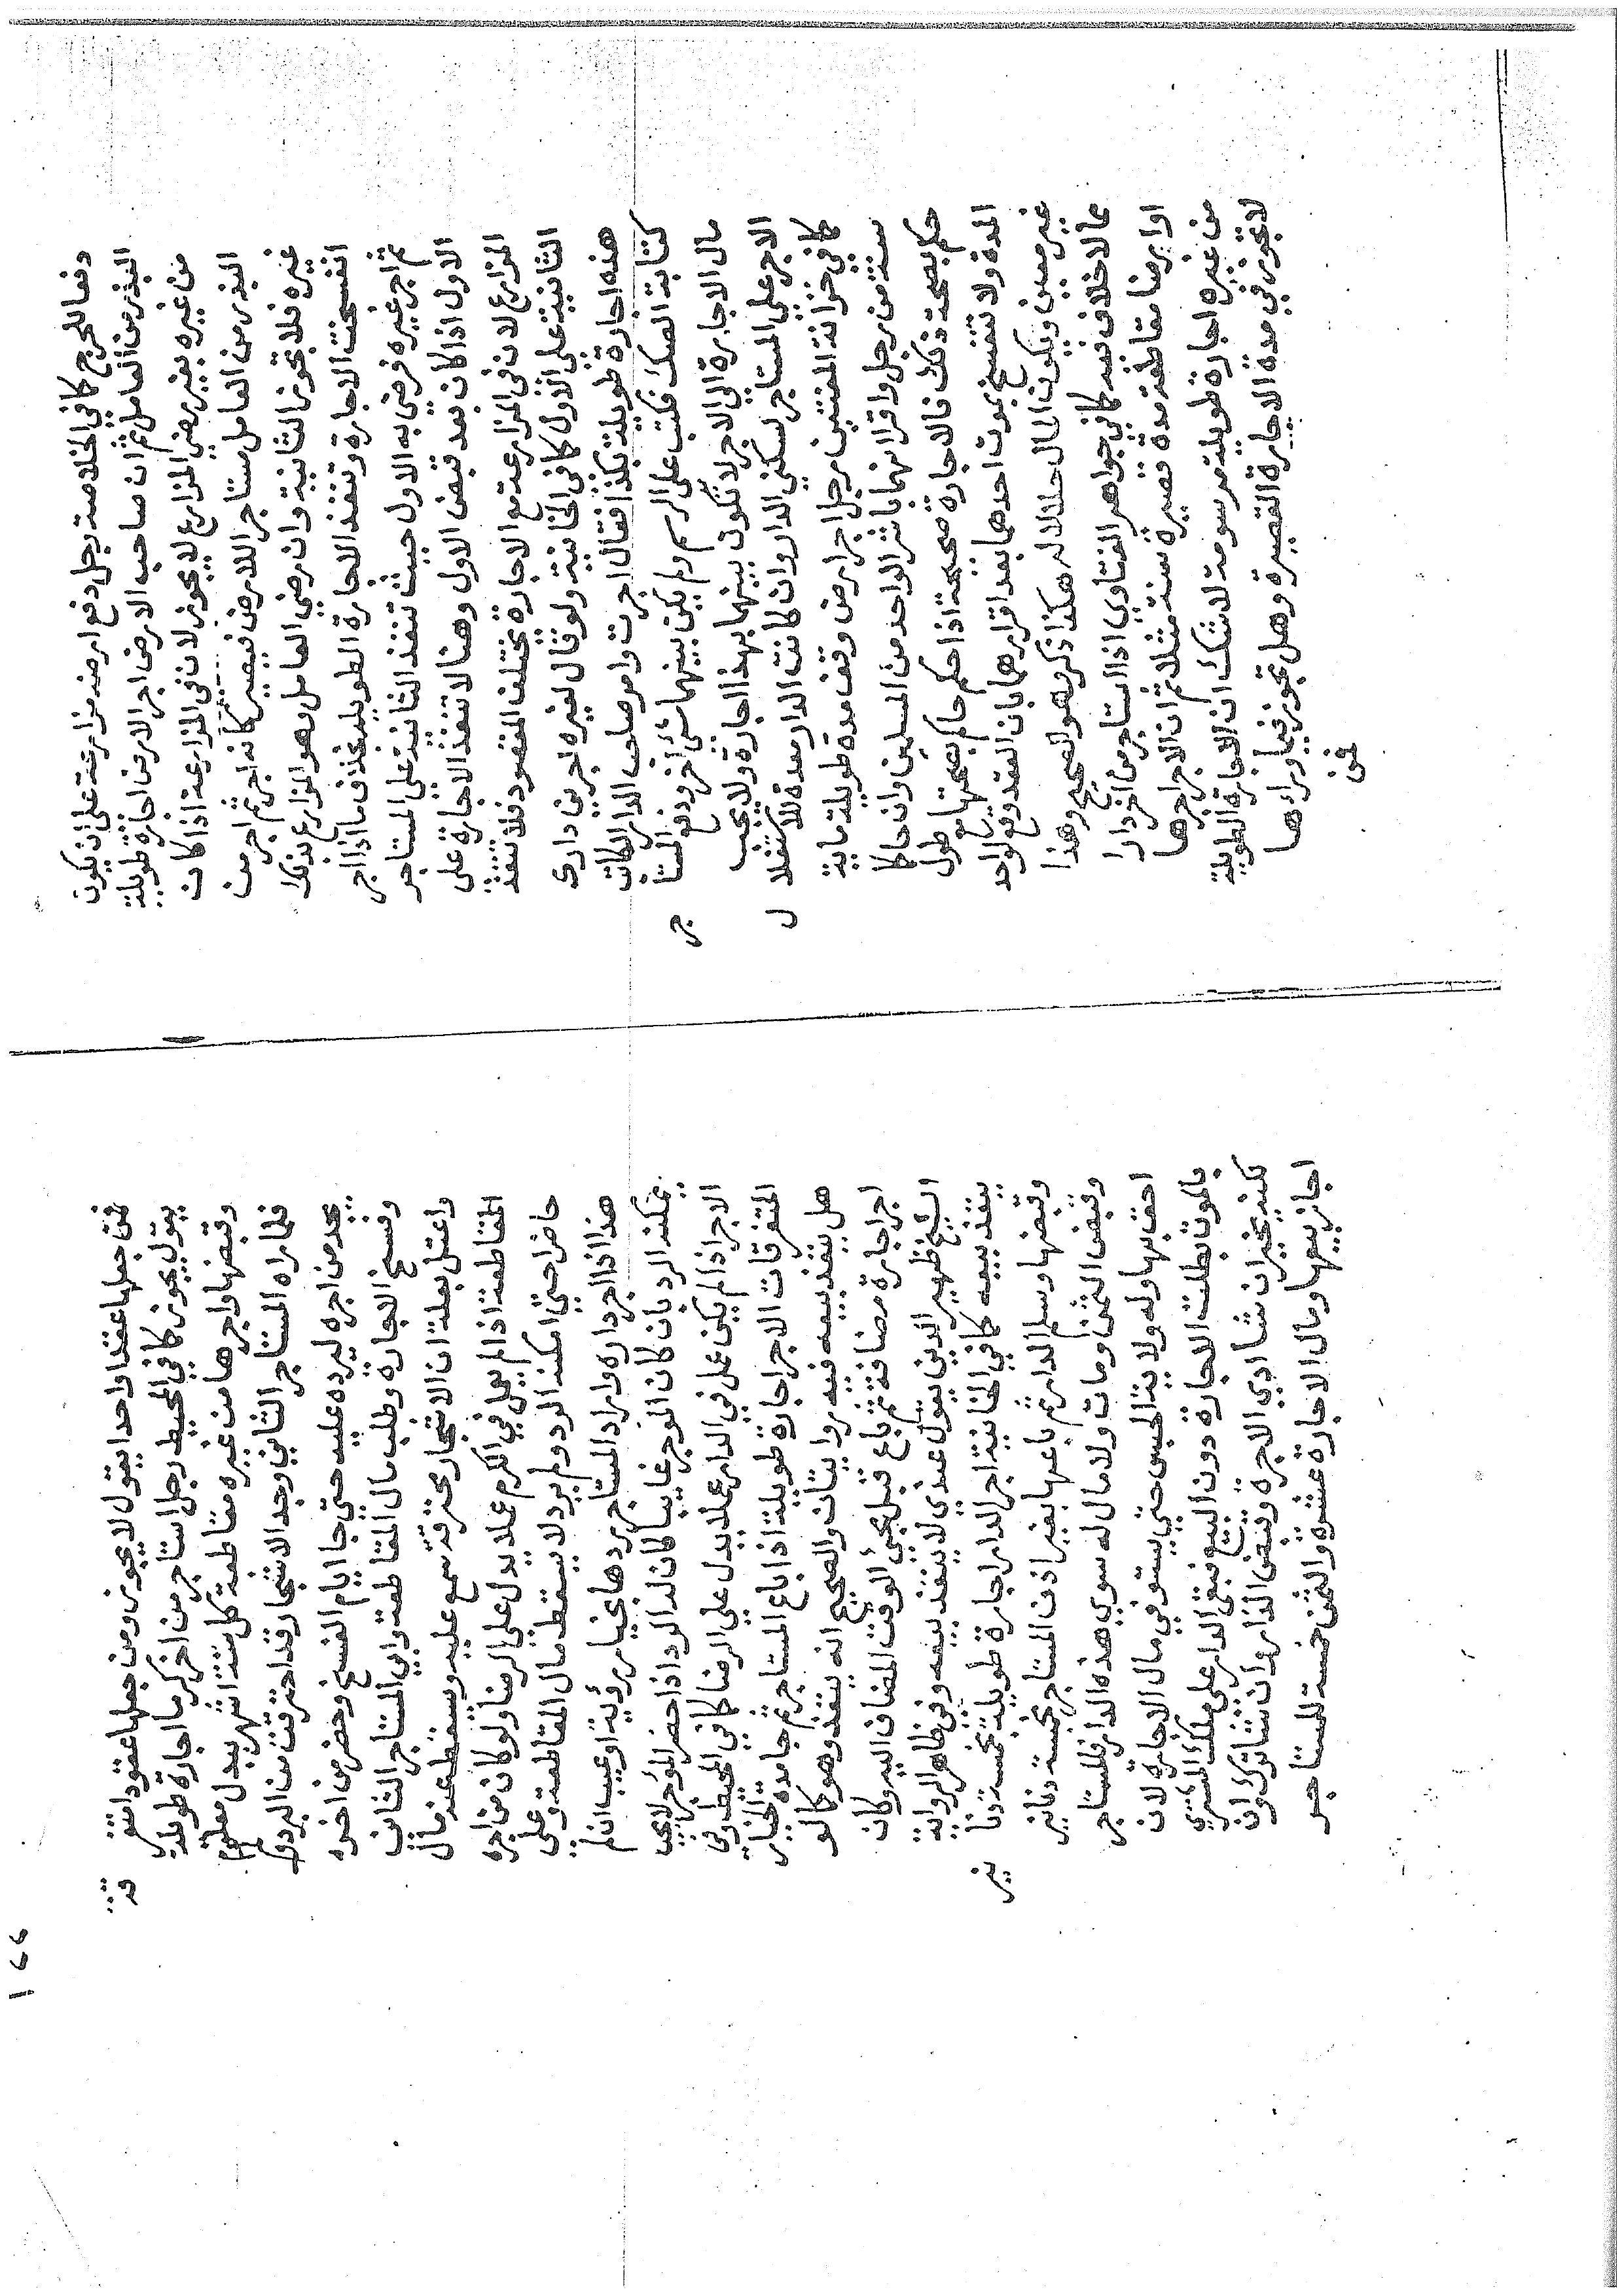 دفعا للحرج كما في الخلاصة رجل دفع ارضه مزارعة على ان يكون
البذر من العامل ثم ان صاحب الارض اجر الارض اجارة طويلة
من غيره بغير رضي المزارع لا يجوز لان في المزارعة اذا كان
البذر من العامل مستاجرا للارض فيصير كانه اجر ثم اجر من
غيره فلا تجوز الثانية وان رضي العامل وهو المزارع بذلك
انفسخت الاجارة وتنفذ الاجارة الطويلة بخلاف ما اذا اجر
ثم اجر غيره فرضي به الاول حيث تنفذ الثانية على المستاجر
الاول اذا كان بعد قبض الاول وهنا لا تنفذ الاجارة على
المزارع لان في المزارعة مع الاجارة يختلف المقصود فلا تنفذ
الثانية على الاول كما في الخانية ولو قال لغيره اجرني داري
هذه اجارة طويلة بكذا فقال اجرت وامر صاحب الدار الكاتب
كتابة الصك فكتب على الرسم ولم يكن بينهما شيء اخر ودفع المستا
جر
مال الاجارة الى الاجر لا تكون بينهما بهذا اجارة ولا يجب
الاجر على المستاجر لسكني الدار وان كانت الدار معدة للاستغلا
ل
كما في خزانة المفتين رجل اجر ارض وقف مدة طويلة ماية
سنة من رجل واقرا انهما باشر الواحد من المسلمين وان حاكما
حكم بصحة ذلك فالاجارة صحيحة اذا حكم حاكم بصحتها مع طول
المدة ولا تنفسخ بموت احدهما بعد اقرارهما بان العقد وقع لواحد
غير معين ويكون المال حلالا له هكذا ذكر وهو الصحيح وهذا
مما لا خلاف فيه كما في جواهر الفتاوي اذا استاجر من اخر دارا
او ارضا مقاطعة مدة قصيرة سنة مثلا ثم ان الاجر اجرها
من غيره اجارة طويلة مرسومة لا شك ان الاجارة الطويلة
لا تجوز في مدة الاجارة القصيرة وهل تجوز فيما وراءها
فمن
فمن جعلها عقدا واحدا يقول لا يجوز ومن جعلها عقودا متفر
قة
يقول يجوز كما في المحيط رجل استاجر من اخر كرما اجارة طويلة
وقبضها واجرها من غيره مقاطعة كل ستة اشهر ببدل معلوم
فلما راه المستاجر الثاني وجد الاشجار قد احترقت من البرد ولم
يجد من اجره ليرده عليه حتي جا ايام الفسخ وحضر من اخره
وفسخ الاجارة وطلب مال المقاطعة وابي المستاجر الثاني
واعتل بعلة ان الاشجار محترقة تسمع عليه ويسقط عنه مال
المقاطعة اذا لم يعمل في الكرم عملا يدل على الرضا ولو كان من اجره
حاضرا حتي امكنه الرد ولم يرد لا يسقط مال المقاطعة وعلى
هذا اذا اجر داره واراد المستاجر ردها بخيار رؤية او عيب ان لم
يمكنه الرد بان كان المؤجر غايبا كان له الرد اذا حضر المؤجر لا يجب
الاجر اذا لم يكن عمل في الدار عملا يدل علي الرضا كما في المحيط وفي
المتفرقات الاجر اجارة طويلة اذا باع المستاجر ثم جا مدة الخيار
هل ينفذ بيعه فيه روايتان والصحيح انه ينفذ وهو كما لو
اجر اجارة مضافة ثم باع قبل مجيء الوقت المضاف اليه وكان
الشيخ ظهير الدين يقول عندي لا ينفذ بيعه وفي ظاهر الرواية
ينفذ بيعه كما في الخانية اجر الدار اجارة طويلة بخمسة دنا
نير
وقبضها وسلم الدار ثم باعها بغير اذن المستاجر بخمسة دنانير
وقبض الثمن ومات ولا مال له سوي هذه الدار فالمستاجر
احق بها وله ولاية الحبس حتي يستوفي مال الاجارة لان
بالموت بطلت الاجارة دون البيع فبقي الدار على ملك المشتري
لكنه يخير ان شا ادي الاجرة وقبض الدار وان شا ترك وان
اجاز بيعها ومال الاجارة عشرة والثمن خمسة للمستاجر
١٦٦